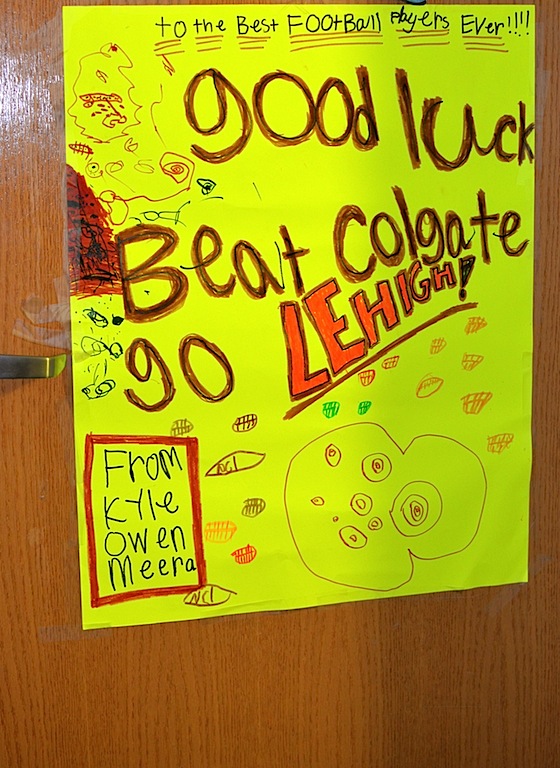 to the Best FOOtBall Players Ever!!!!
good luck
Beat Colgate
go LEHIGH!
From
Kyle
Owen
Meera